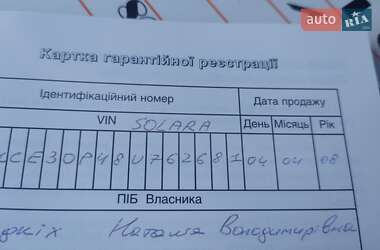 auto RIA
Картка гарантійної реєстрації
Ідентифікаційний номер Дата продажу
VIN SOLARA День Місяць Рік
CE30P48U762681 04 04 08
ПІБ Власника
Наталія Володимирівна